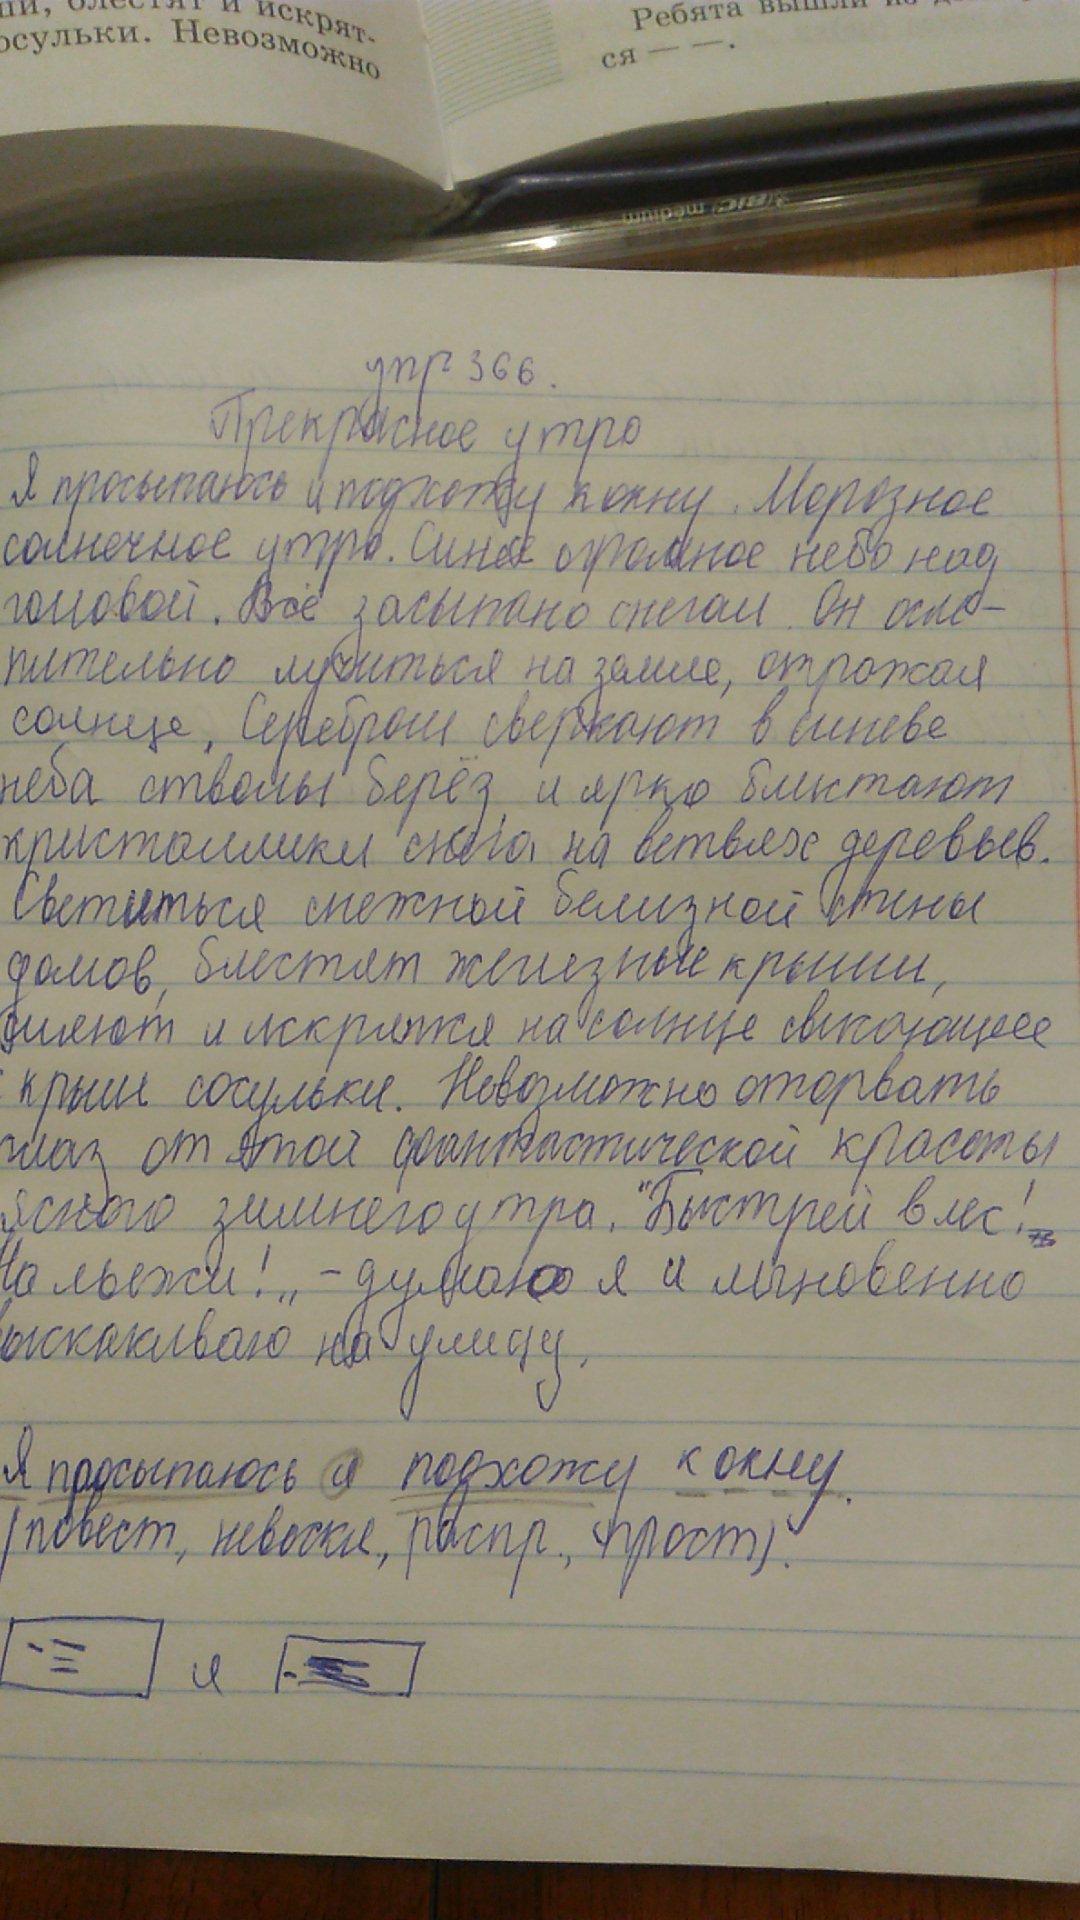 ши, блестят и искрят-
осульки. Невозможно
Ребята вышли из
ся — —.
BIC medium
упр 366.
Прекрасное утро
Я просыпаюсь и подхожу к окну. Морозное
солнечное утро. Синее огромное небо над
головой. Всё засыпано снегом. Он осле-
пительно лучиться на земле, отражая
солнце, Серебром сверкают в синеве
неба стволы берёз и ярко блистают
кристаллики снега на ветвях деревьев.
Светиться снежной белизной стены
домов, блестят железные крыши,
сияют и искрятся на солнце свисающее
с крыш сосульки. Невозможно оторвать
глаз от этой фантастической красоты
ясного зимнего утра. "Быстрей в лес!
На лыжи!„ - думаю я и мгновенно
выскакиваю на улицу.
Я просыпаюсь и подхожу к окну.
(повест, невоскл, распр., прост).
и